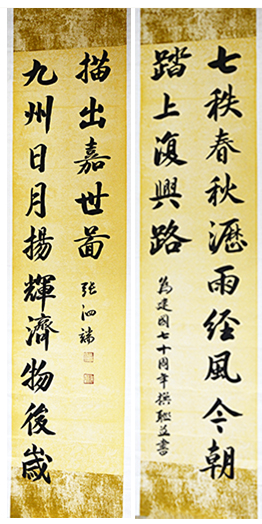 七秩春秋瀝雨经風今朝
踏上復興路
為建国七十周年撰聯並書
九州日月揚輝濟物後歲
描出嘉世啚
张泗端